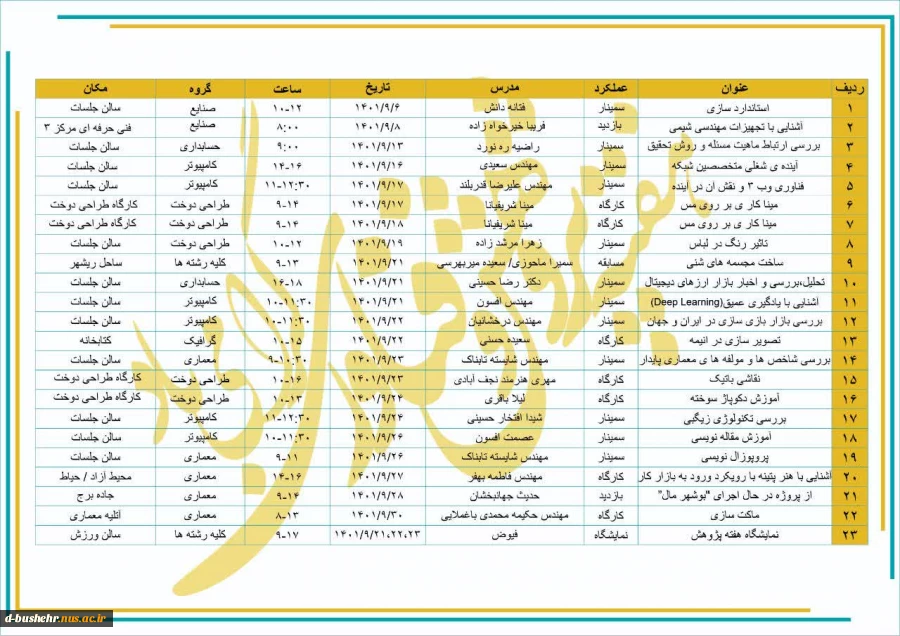 ردیف عنوان عملکرد مدرس تاریخ ساعت گروه مکان
۱ استاندارد سازی سمینار فتانه دانش ۱۴۰۱/۹/۶ ۱۰-۱۲ صنایع سالن جلسات
۲ آشنایی با تجهیزات مهندسی شیمی بازدید فریبا خیرخواه زاده ۱۴۰۱/۹/۸ ۸:۰۰ صنایع فنی حرفه ای مرکز ۳
۳ بررسی ارتباط ماهیت مسئله و روش تحقیق سمینار راضیه ره نورد ۱۴۰۱/۹/۱۳ ۹:۰۰ حسابداری سالن جلسات
۴ آینده ی شغلی متخصصین شبکه سمینار مهندس سعیدی ۱۴۰۱/۹/۱۶ ۱۴-۱۶ کامپیوتر سالن جلسات
۵ فناوری وب ۳ و نقش ان در آینده سمینار مهندس علیرضا قدربلند ۱۴۰۱/۹/۱۷ ۱۱-۱۲:۳۰ کامپیوتر سالن جلسات
۶ مینا کار ی بر روی مس کارگاه مینا شریفیانا ۱۴۰۱/۹/۱۷ ۹-۱۴ طراحی دوخت کارگاه طراحی دوخت
۷ مینا کار ی بر روی مس کارگاه مینا شریفیانا ۱۴۰۱/۹/۱۸ ۹-۱۴ طراحی دوخت کارگاه طراحی دوخت
۸ تاثیر رنگ در لباس سمینار زهرا مرشد زاده ۱۴۰۱/۹/۱۹ ۱۰-۱۲ طراحی دوخت سالن جلسات
۹ ساخت مجسمه های شنی مسابقه سمیرا ماحوزی/ سعیده میربهرسی ۱۴۰۱/۹/۲۱ ۹-۱۳ کلیه رشته ها ساحل ریشهر
۱۰ تحلیل،بررسی و اخبار بازار ارزهای دیجیتال سمینار دکتر رضا حسینی ۱۴۰۱/۹/۲۱ ۱۶-۱۸ حسابداری سالن جلسات
۱۱ آشنایی با یادگیری عمیق(Deep Learning) سمینار مهندس افسون ۱۴۰۱/۹/۲۱ ۱۰-۱۱:۳۰ کامپیوتر سالن جلسات
۱۲ بررسی بازار بازی سازی در ایران و جهان سمینار مهندس درخشانیان ۱۴۰۱/۹/۲۲ ۱۰-۱۱:۳۰ کامپیوتر سالن جلسات
۱۳ تصویر سازی در انیمه کارگاه سعیده حسنی ۱۴۰۱/۹/۲۲ ۱۰-۱۵ گرافیک کتابخانه
۱۴ بررسی شاخص ها و مولفه ها ی معماری پایدار سمینار مهندس شایسته تابناک ۱۴۰۱/۹/۲۳ ۹-۱۰:۳۰ معماری سالن جلسات
۱۵ نقاشی باتیک کارگاه مهری هنرمند نجف آبادی ۱۴۰۱/۹/۲۳ ۱۰-۱۶ طراحی دوخت کارگاه طراحی دوخت
۱۶ آموزش دکوپاژ سوخته کارگاه لیلا باقری ۱۴۰۱/۹/۲۴ ۱۰-۱۳ طراحی دوخت کارگاه طراحی دوخت
۱۷ بررسی تکنولوژی زیگبی سمینار شیدا افتخار حسینی ۱۴۰۱/۹/۲۴ ۱۱-۱۲:۳۰ کامپیوتر سالن جلسات
۱۸ آموزش مقاله نویسی سمینار عصمت افسون ۱۴۰۱/۹/۲۶ ۱۰-۱۱:۳۰ کامپیوتر سالن جلسات
۱۹ پروپوزال نویسی سمینار مهندس شایسته تابناک ۱۴۰۱/۹/۲۶ ۹-۱۱ معماری سالن جلسات
۲۰ آشنایی با هنر پتینه با رویکرد ورود به بازار کار کارگاه مهندس فاطمه بهفر ۱۴۰۱/۹/۲۷ ۱۴-۱۶ معماری محیط آزاد / حیاط
۲۱ از پروژه در حال اجرای "بوشهر مال" بازدید حدیث جهانبخشان ۱۴۰۱/۹/۲۸ ۹-۱۴ معماری جاده برج
۲۲ ماکت سازی کارگاه مهندس حکیمه محمدی باغملایی ۱۴۰۱/۹/۳۰ ۸-۱۳ معماری آتلیه معماری
۲۳ نمایشگاه هفته پژوهش نمایشگاه فیوض ۱۴۰۱/۹/۲۱،۲۲،۲۳ ۹-۱۷ کلیه رشته ها سالن ورزش
d-bushehr.nus.ac.ir